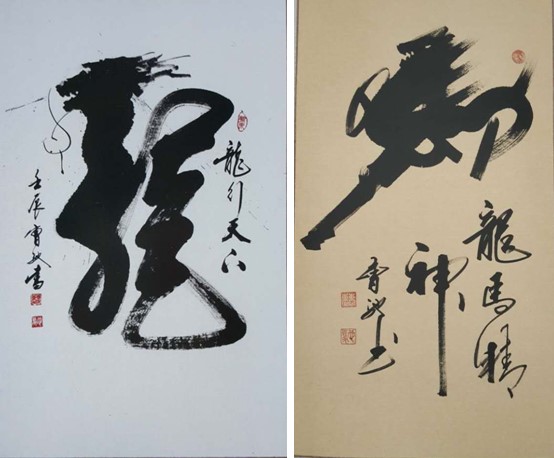 龍
龍行天下
壬辰 書
馬
龍馬精
神
书